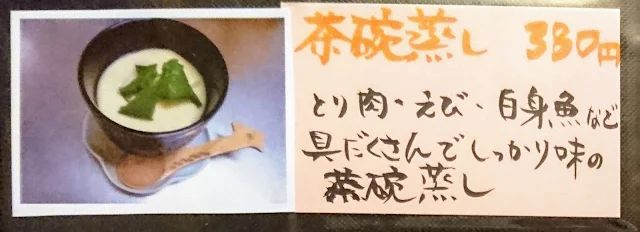 茶碗蒸し 330円
とり肉・えび・白身魚など
具だくさんでしっかり味の
茶碗蒸し